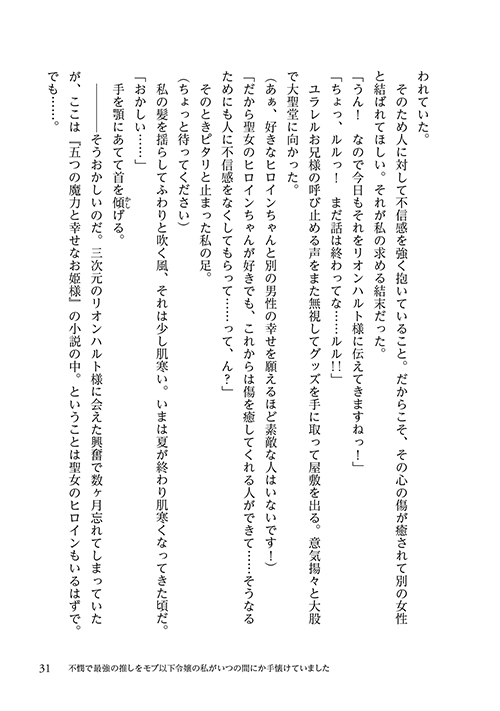 われていた。
　そのため人に対して不信感を強く抱いていること。だからこそ、その心の傷が癒されて別の女性
と結ばれてほしい。それが私の求める結末だった。
「うん！　なので今日もそれをリオンハルト様に伝えてきますねっ！」
「ちょっ、ルルっ！　まだ話は終わってな……ルル!!」
　ユラレルお兄様の呼び止める声をまた無視してグッズを手に取って屋敷を出る。意気揚々と大股
で大聖堂に向かった。
（あぁ、好きなヒロインちゃんと別の男性の幸せを願えるほど素敵な人はいないです！）
「だから聖女のヒロインちゃんが好きでも、これからは傷を癒してくれる人ができて……そうなる
ためにも人に不信感をなくしてもらって……って、ん？」
　そのときピタリと止まった私の足。
（ちょっと待ってください）
　私の髪を揺らしてふわりと吹く風、それは少し肌寒い。いまは夏が終わり肌寒くなってきた頃だ。
「おかしい……」
　手を顎にあてて首を傾げる。
かし
　――――そうおかしいのだ。三次元のリオンハルト様に会えた興奮で数ヶ月忘れてしまっていた
が、ここは『五つの魔力と幸せなお姫様』の小説の中。ということは聖女のヒロインもいるはずで。
でも……。
31　不憫で最強の推しをモブ以下令嬢の私がいつの間にか手懐けていました